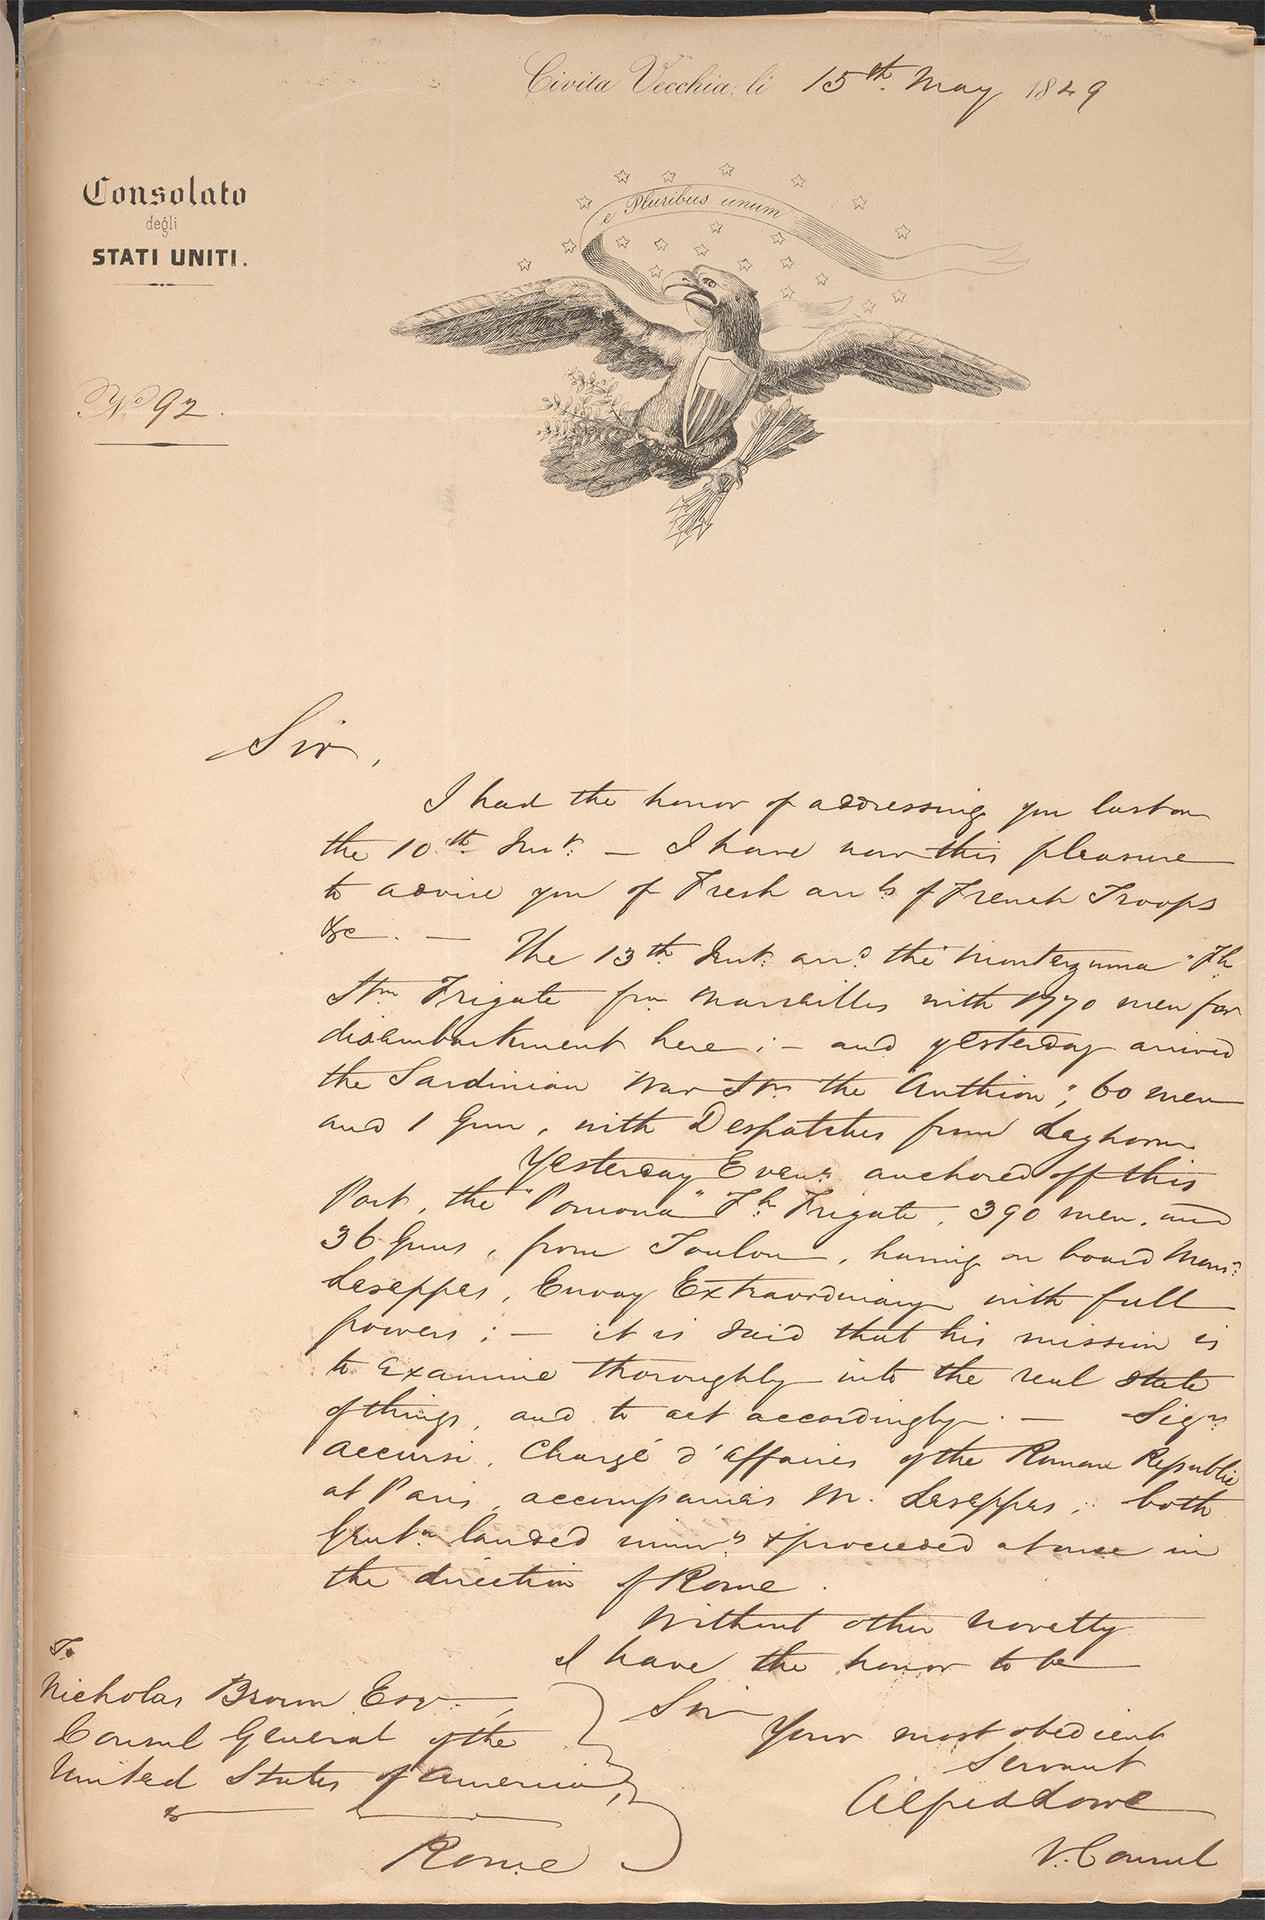 Civita Vecchia, li 15th. May 1849
Consolato
degli
STATI UNITI.
e Pluribus unum
No 92.
Sir,
I had the honor of addressing you last on
the 10th. Inst. — I have now this pleasure
to advise you of Fresh arrls of French Troops
&c. — The 13th Inst. arrd the "Montezuma" Fh
Stm Frigate from Marseilles with 1770 men for
disembarkment here; — and yesterday arrived
the Sardinian War Stm the "Authion", 60 men
and 1 Gun, with Despatches from Leghorn
Yesterday Eveng anchored off this
Port, the "Pomona" Fh Frigate, 390 men, and
36 Guns, from Toulon, having on board Monsr
Leseppes, Envoy Extraordinary with full
powers; — it is said that his mission is
to examine thoroughly into the real state
of things, and to act accordingly. — Sigr
Accursi, Chargé d'Affaires of the Roman Republic
at Paris, accompanies M. Leseppes; both
Gentn landed & proceeded at once in
the direction of Rome.
Without other novelty
I have the honor to be
Sir
Your most obedient
Servant
Alfred Lowe
V. Consul
To
Nicholas Brown Esqr.,
Consul General of the
United States of America,
&
Rome